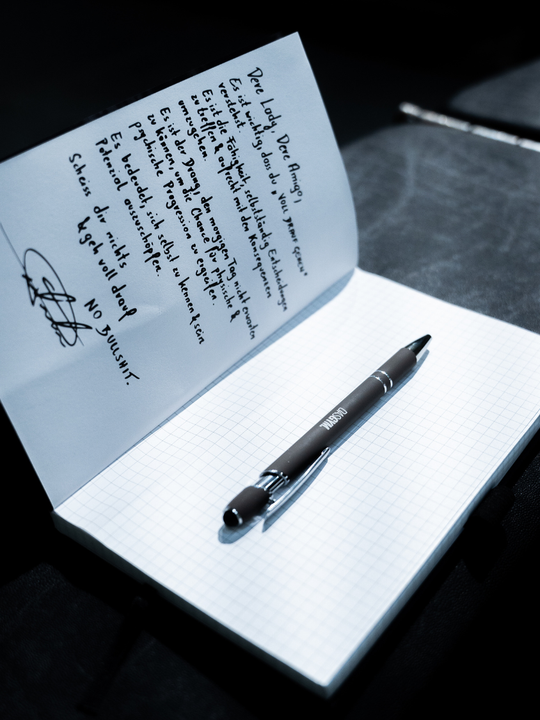 Dere Lady, Dere Amigo,
Es ist wichtig, dass du „VOLL DRAUF GEHEN“
verstehst.
Es ist die Fähigkeit, selbstständig Entscheidungen
zu treffen & aufrecht mit den Konsequenzen
umzugehen.
Es ist der Drang, den morgigen Tag nicht erwarten
zu können, um die Chance für physische &
psychische Progression zu ergreifen.
Es bedeutet, sich selbst zu kennen & sein
Potenzial auszuschöpfen.
Scheiss dir nichts,
& geh voll drauf
NO BULLSHIT.